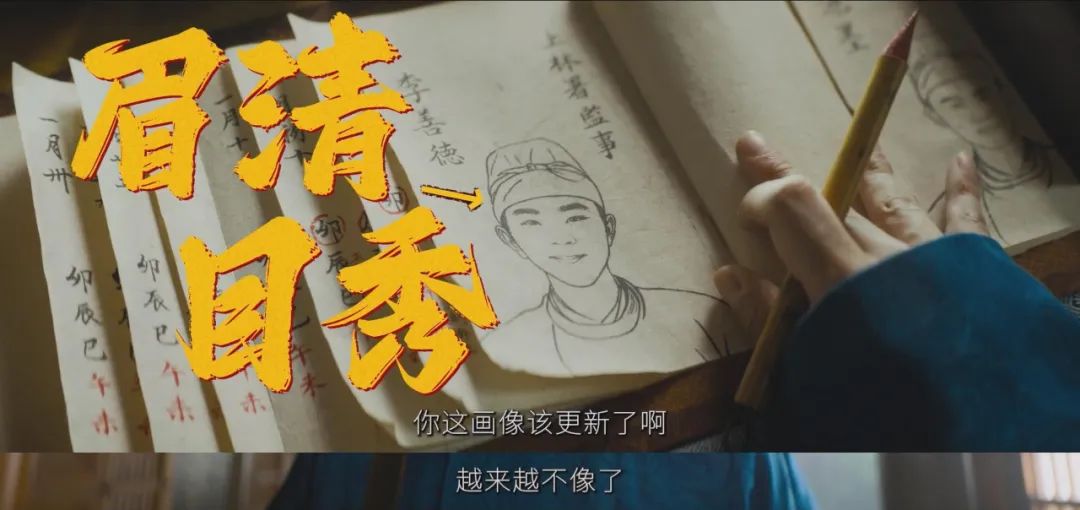 眉清
目秀
李善德
上林署監事
一月卅
卯辰巳
午未
卯辰巳
午未
一月十
卯
辰
卯
你这画像该更新了啊
越来越不像了